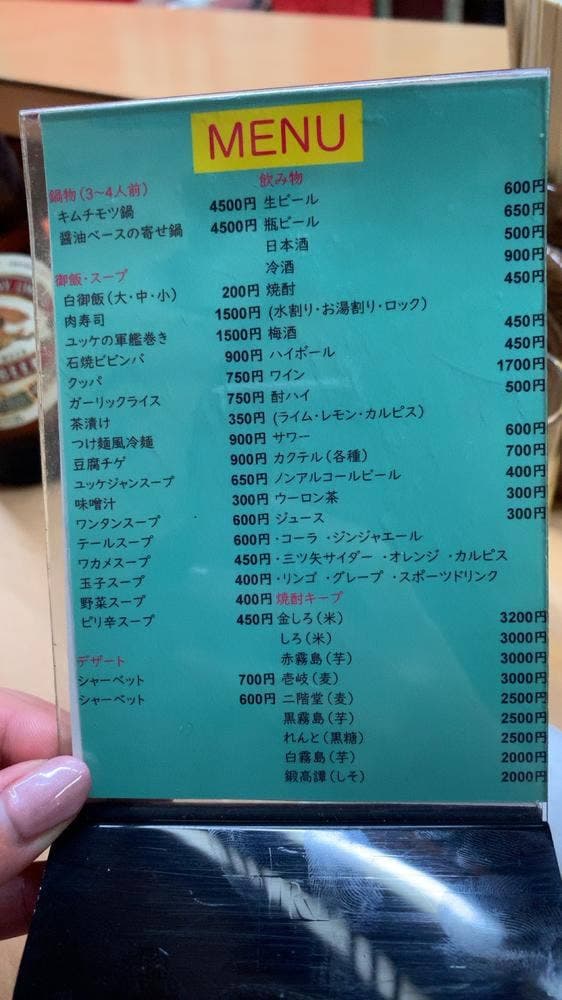 MENU
鍋物(3〜4人前)
キムチモツ鍋 4500円
醤油ベースの寄せ鍋 4500円
御飯・スープ
白御飯(大・中・小) 200円
肉寿司 1500円
ユッケの軍艦巻き 1500円
石焼ビビンバ 900円
クッパ 750円
ガーリックライス 750円
茶漬け 350円
つけ麺風冷麺 900円
豆腐チゲ 900円
ユッケジャンスープ 650円
味噌汁 300円
ワンタンスープ 600円
テールスープ 600円
ワカメスープ 450円
玉子スープ 400円
野菜スープ 400円
ピリ辛スープ 450円
デザート
シャーベット 700円
シャーベット 600円
飲み物
生ビール 600円
瓶ビール 650円
日本酒 500円
冷酒 900円
焼酎 450円
(水割り・お湯割り・ロック)
梅酒 450円
ハイボール 450円
ワイン 1700円
酎ハイ 500円
(ライム・レモン・カルピス)
サワー 600円
カクテル(各種) 700円
ノンアルコールビール 400円
ウーロン茶 300円
ジュース 300円
・コーラ ・ジンジャエール
・三ツ矢サイダー ・オレンジ ・カルピス
・リンゴ ・グレープ ・スポーツドリンク
焼酎キープ
金しろ(米) 3200円
しろ(米) 3000円
赤霧島(芋) 3000円
壱岐(麦) 3000円
二階堂(麦) 2500円
黒霧島(芋) 2500円
れんと(黒糖) 2500円
白霧島(芋) 2000円
鍛高譚(しそ) 2000円